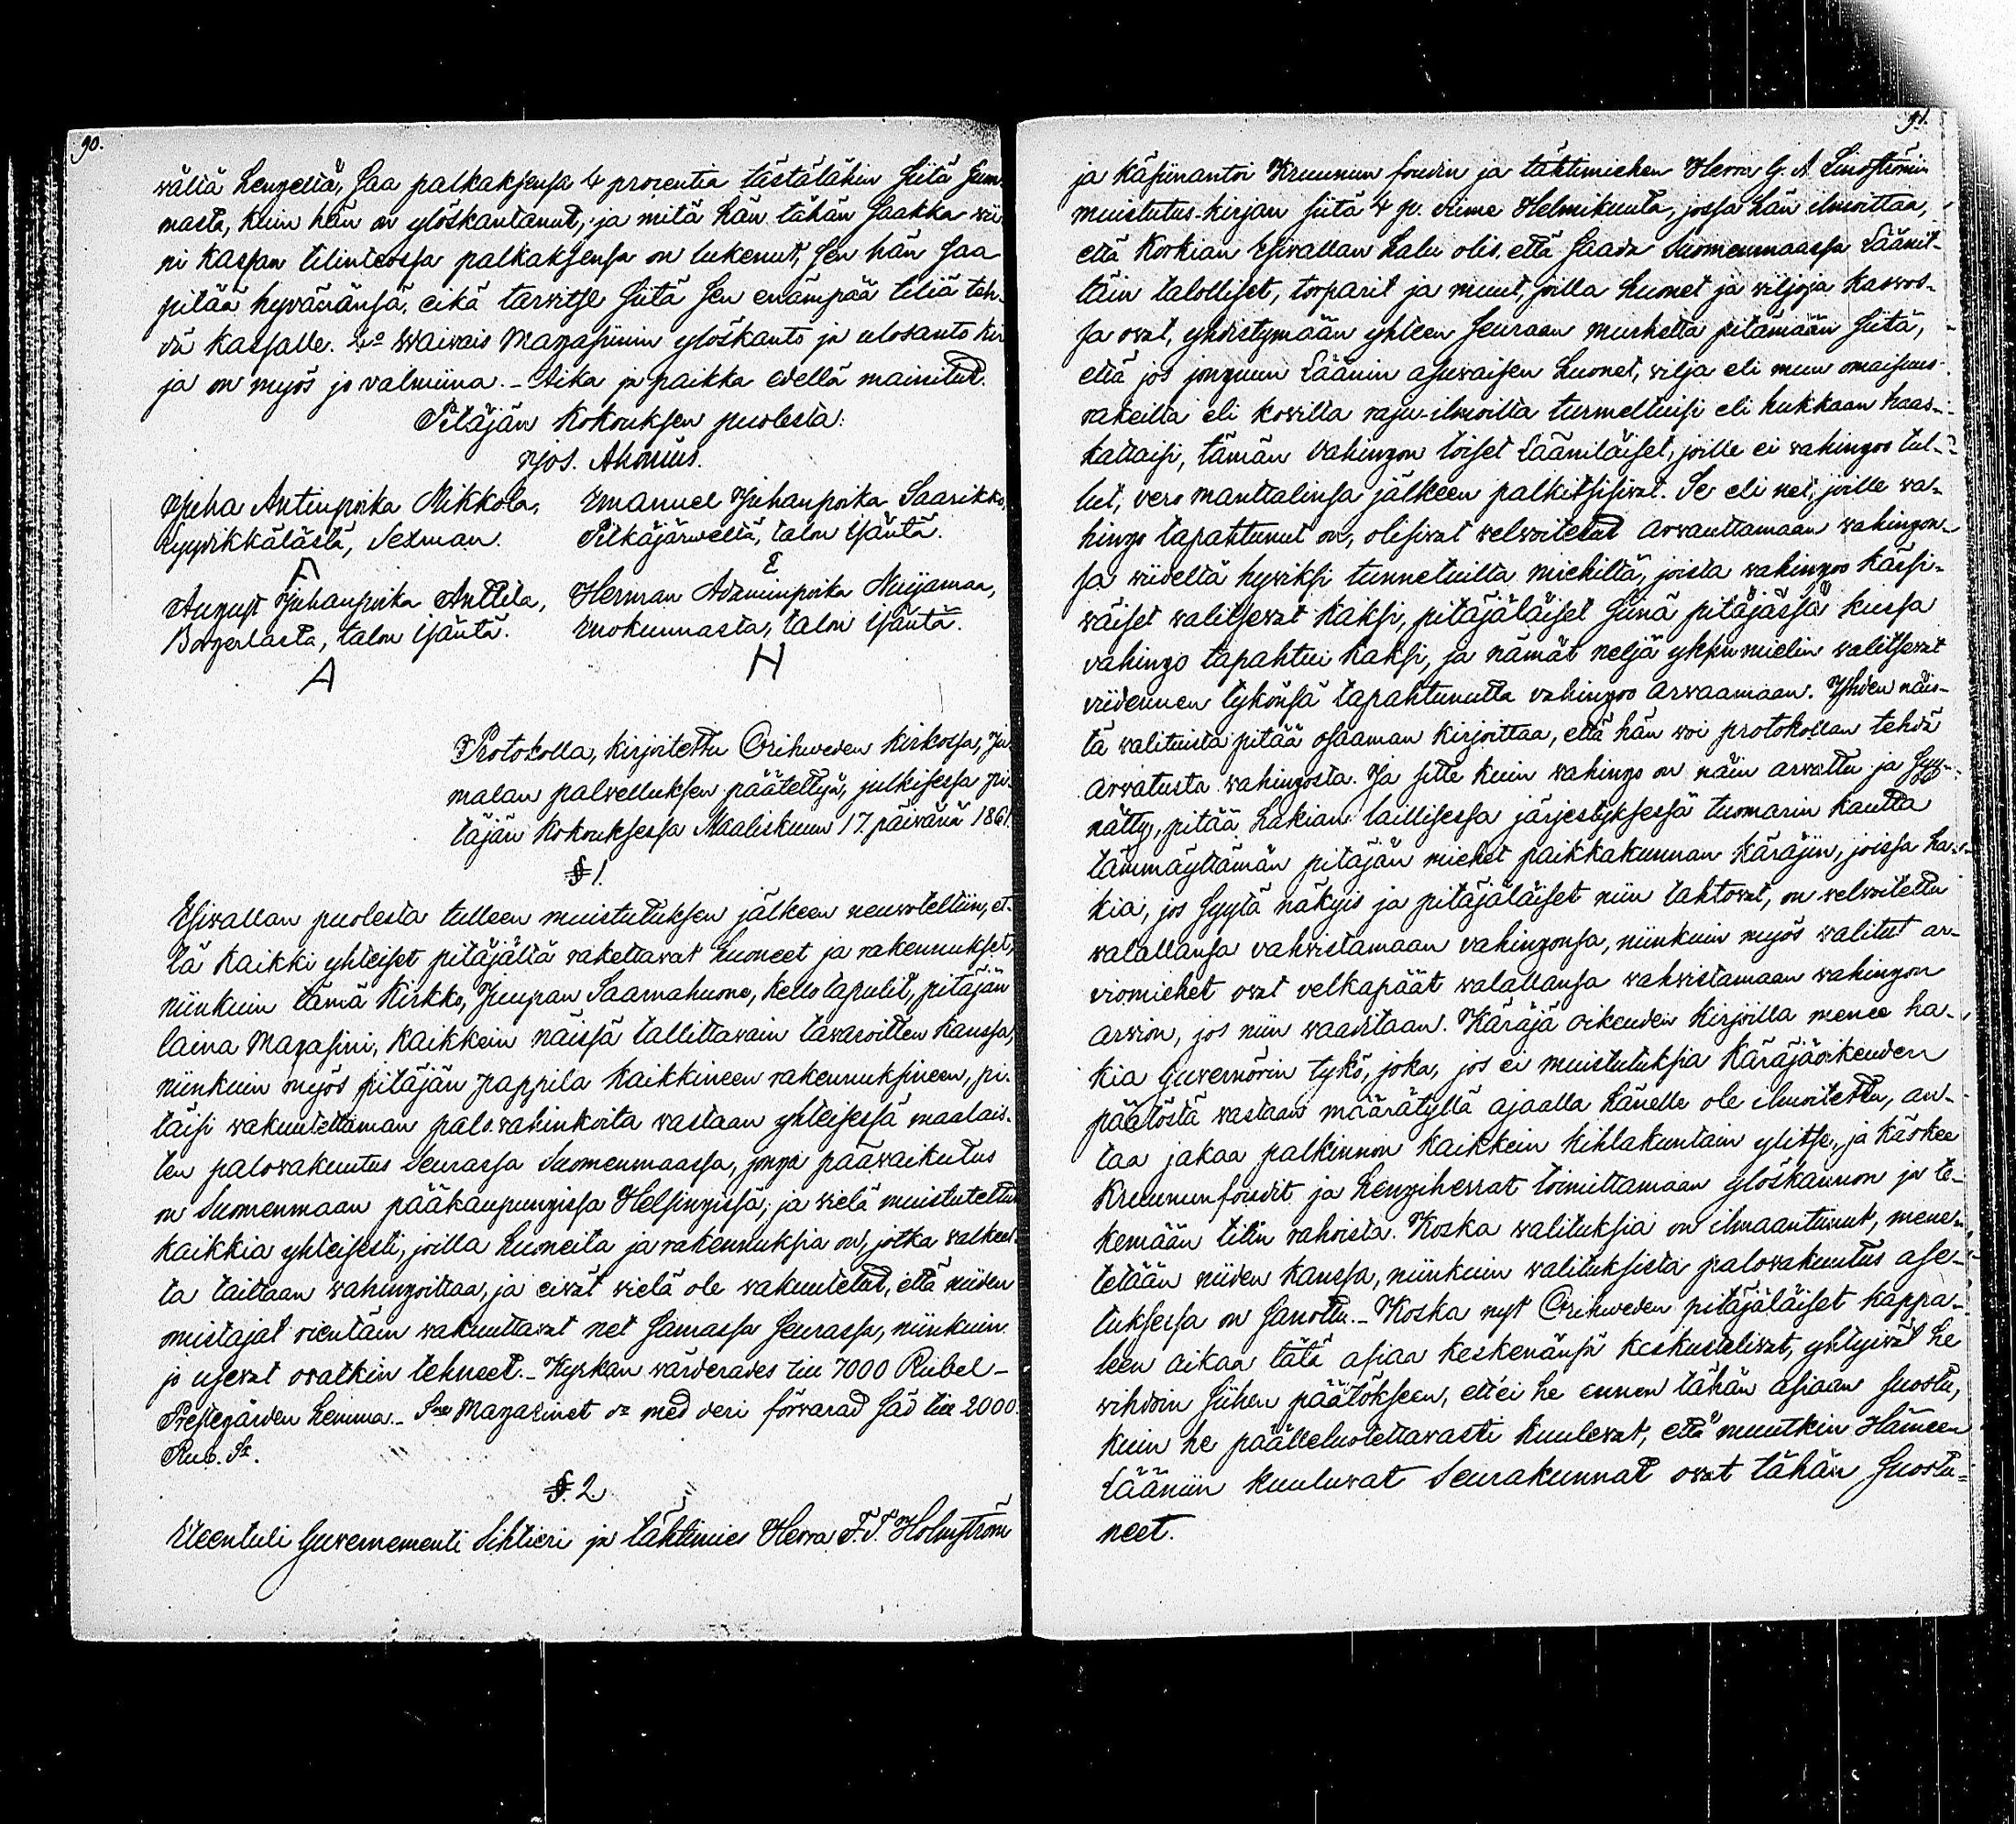 90.
wäliä hengeliä, saa palkaksensa 4 procentia tästälähin siitä sum-
masta, kuin hän on ylöskantanut, ja mitä hän tähän saakka wii-
ni kassan tilinteossa palkaksensa on lukenut, sen hän saa
pitää hywänänsä, eikä tarwitse siitä sen enämpää tiliä teh-
dä kassalle. Waiwais Magasiinin ylöskanto ja ulosanto kir-
ja on myös jo valmiina. - Aika ja paikka edellä mainitut.
Pitäjän kokouksen puolesta:
Jos. Ahonius.
Juha Antinpoika Mikkola, Emanuel Juhanpoika Saarikko,
Lyydikkälästä, Sexman. Pitkäjärweltä, talon isäntä.
A E
August Juhanpoika Anttila, Herman Adaminpoika Nuijamaa,
talon isäntä. Enokunnasta, talon isäntä.
A H
Protokolla, kirjoitettu Orihweden kirkossa, Ju-
malan palvelluksen päätettyä, julkisessa pi-
täjän kokouksessa Maaliskuun 17. päivänä 1861.
§ 1.
Esiwallan puolesta tulleen muistutuksen jälkeen neuwoteltiin, et-
tä kaikki yhteiset pitäjältä rakettawat huoneet ja rakennukset,
niinkuin tämä kirkko, Juupan Saarnahuone, kellotapulit, pitäjän
laina Magasini, kaikkein näissä tallittawain tawaroitten kanssa,
niinkuin myös pitäjän pappila kaikkineen rakennuksineen, pi-
täisi wakuutettaman palo wahinkoita wastaan yhteisessä maalais-
ten palowakuutus Seurassa Suomenmaassa, jonga päävaikutus
on Suomenmaan pääkaupungissa Helsingissä; ja wielä muistutettiin
kaikkia yhteisesti, joilla huoneita ja rakennuksia on, jotka walkeal-
ta taittaan wahingoittaa, ja eiwät wielä ole wakuutetut, että niiden
omistajat rientäin wakuuttawat net samassa seurassa, niinkuin
jo usevat ovatkin tehneet. - Kyrkan värderades till 7000 Rubel -
Prestegården hemma. - Magazinet med deri förvarad säd till 2000
Rub. Sr.
§. 2
Eteentuli Guvernementi Sihtieri ja tähtimies Herra F. F. Holmström
91.
ja käsiinantoi Kruunun foudin ja tähtimiehen Herra G. A. Lindströmin
muistutus-kirjan siitä 4 p. viime Helmikuuta, jossa hän ilmoittaa,
että Korkian Esiwallan halu olis, että saada Suomenmaassa Läänit-
täin talolliset, torparit ja muut, joilla huonet ja wiljoja kaswos-
sa ovat, yhdistymään yhteen Seuraan murhetta pitämään siitä,
että jos jonguun Läänin asuwaisen huonet, wilja eli muu omaisuus
rakeilta eli kowilta raju-ilmoilta turmeltuisi eli hukkaan haas-
kattaisi, tämän vahingon toiset Lääniläiset, joille ei wahingoo tul-
lut, vero manttalinsa jälkeen palkitsisiwat. Se eli net, joille wa-
hingo tapahtunut on, olisivat welwoitetut arwauttamaan wahingon-
sa wiideltä hywiksi tunnetuilta miehiltä, joista wahingoo kärsi-
wäiset walitsewat kaksi, pitäjäläiset siinä pitäjässä kussa
vahingo tapahtui kaksi, ja nämät neljä yksimielin walitsewat
viidennen tykönsä tapahtunutta vahingoo arwaamaan. Yhden näis-
tä walituista pitää osaaman kirjoittaa, että hän woi protokollan tehdä
arwatusta wahingosta. Ja sitte kuin wahingo on näin arvattu ja syy-
nätty, pitää hakian laillisessa järjestyksessä tuomarin kautta
tämmäyttämän pitäjän miehet paikkakunnan Käräjiin, joissa ha-
kia, jos syytä näkyis ja pitäjäläiset niin tahtovat, on welwoitettu
walallansa vahvistamaan vahingonsa, niinkuin myös walitut ar-
viomiehet ovat velkapäät walallansa wahwistamaan wahingon
arwion, jos niin vaaditaan. Käräjä oikeuden kirjoilla menee ha-
kia Guvernörin tykö, joka, jos ei muistutuksia Käräjäoikeuden
päätöstä wastaan määrätyllä ajaalla hänelle ole ilmoitettu, an-
taa jakaa palkinnon kaikkein kihlakuntain ylitse, ja käskee
Kruununfoudit ja Hengiherrat toimittamaan ylöskannon ja te-
kemään tilin rahoista. Koska walituksia on ilmaantunut, mene-
tetään niiden kanssa, niinkuin walituksista palowakuutus ase-
tuksessa on sanottu. - Koska nyt Orihweden pitäjäläiset kappa-
leen aikaa tätä asiaa keskenänsä keskustelivat, yhtyivät he
wihdoin siihen päätökseen, ett'ei he ennen tähän asiaan suostu,
kuin he päälleluotettavasti kuulevat, että muutkin Hämeen
Lääniin kuuluvat Seurakunnat ovat tähän suostu-
neet.